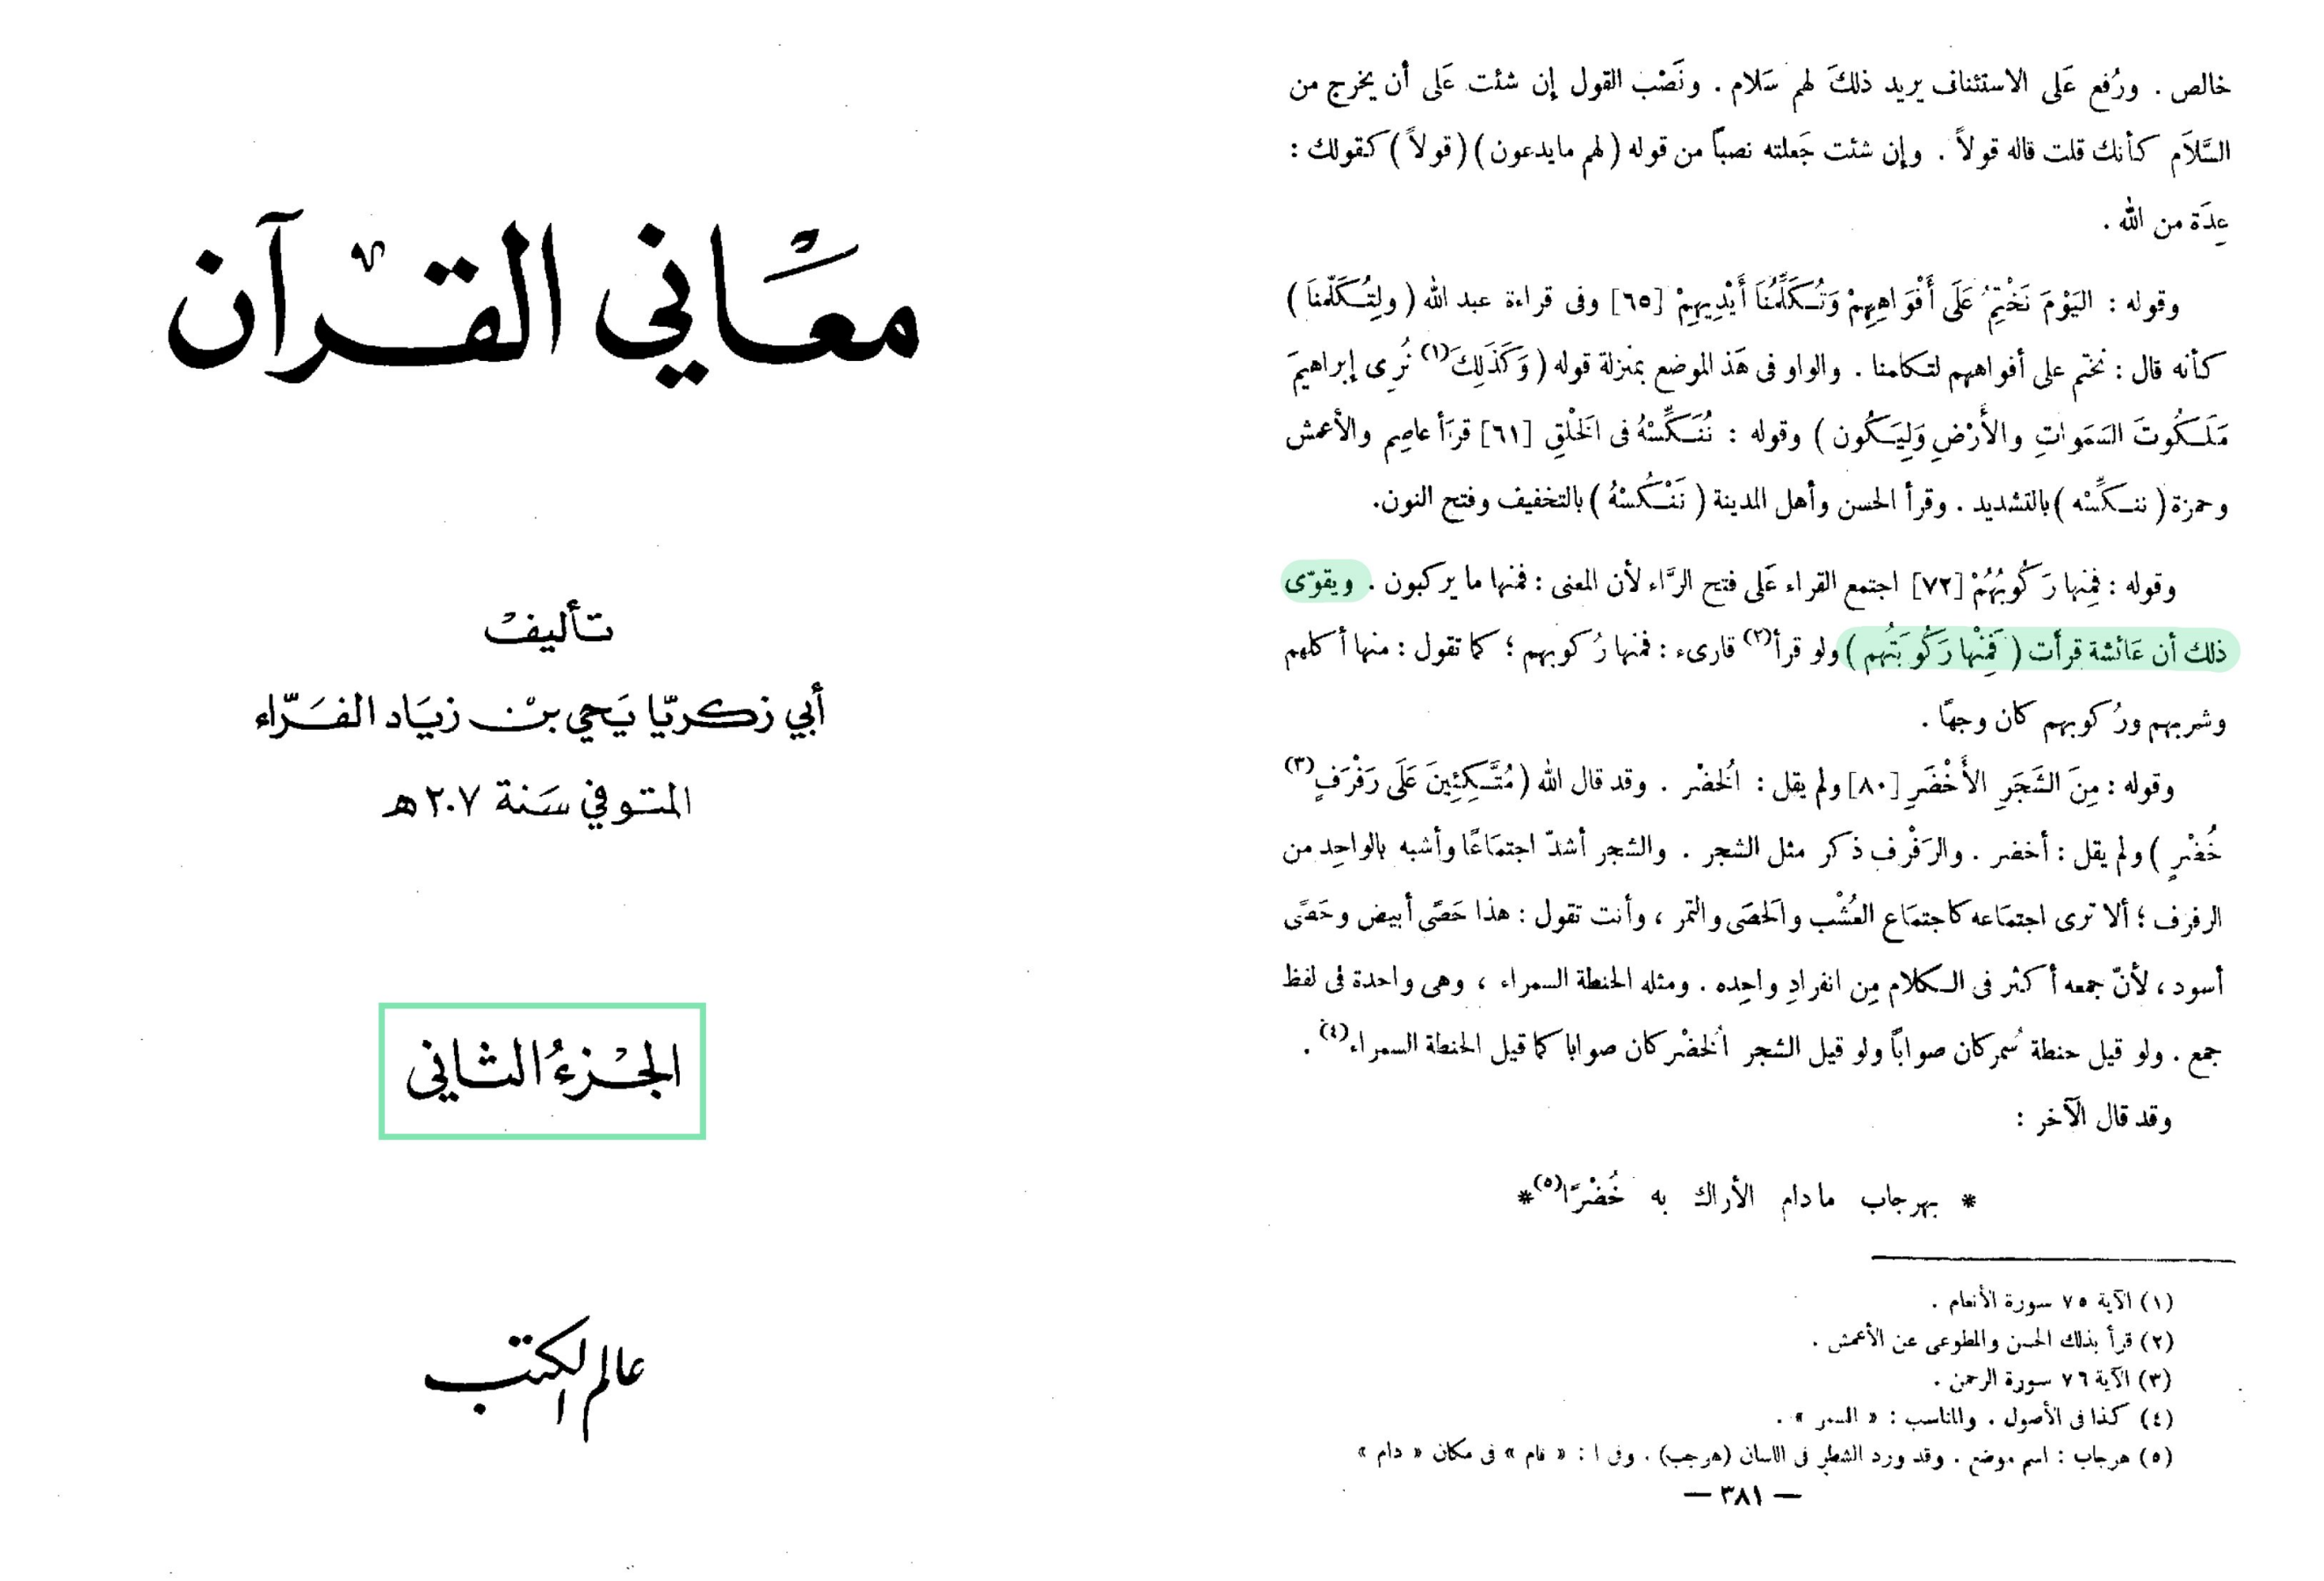 معَاني القرآن
تأليف
أبي زكريّا يَحيى بن زيَاد الفَرّاء
المتوفي سَنة ٢٠٧ هـ
الجزءُ الثاني
عالم الكتب
خالص . ورُفع عَلى الاستئناف يريد ذلكَ لهم سَلام . ونَصْب القول إن شئت عَلى أن يخرج من
السَّلاَم كأنك قلت قاله قولاً . وإن شئت جَعلته نصباً من قوله ( لهم مايدعون ) ( قولاً ) كقولك :
عِدَة من الله .
وقوله : اليَوْمَ نَخْتِمُ عَلَى أَفْوَاهِهِمْ وَتُكَلِّمُنَا أَيْدِيهِمْ [٦٥] وفى قراءة عبد الله ( ولِتُكَلّمنَا )
كأنه قال : نختم على أفواههم لتكلمنا . والواو فى هَذ الموضع بمنزلة قوله ( وَكَذَلِكَ(١) نُرِى إبراهيمَ
مَلَكُوتَ السَمَواتِ والأَرْضِ وَلِيَكُون ) وقوله : نُنَكِّسْهُ فى الخَلْقِ [٦١] قرَأ عاصِم والأعمش
وحمزة ( ننكِّسْه ) بالتشديد . وقرأ الحسن وأهل المدينة ( نَنْكُسْهُ ) بالتخفيف وفتح النون.
وقوله : فَمِنها رَكُوبُهُمْ [٧٢] اجتمع القراء عَلى فتح الرَّاء لأن المعنى : فمنها ما يركبون . ويقوّى
ذلك أن عَائشة قرأت ( فَمِنْها رَكُوبَتُهم ) ولو قرأ(٢) قارىء : فمنها رُكوبهم ؛ كما تقول : منها أكلهم
وشربهم ورُكوبهم كان وجهًا .
وقوله : مِنَ الشَجَرِ الأَخْضَرِ [٨٠] ولم يقل : الُخضْر . وقد قال الله ( مُتَّكِئِينَ عَلَى رَفْرَفٍ(٣)
خُضْرٍ ) ولم يقل : أخضر . والرَفْرف ذكر مثل الشجر . والشجر أشدّ اجتمَاعًا وأشبه بالواحِد من
الرفرف ؛ ألا ترى اجتمَاعه كاجتمَاع العُشْب والَحصَى والتمر ، وأنت تقول : هذا حَصًى أبيض وحَصًى
أسود ، لأنّ جمعه أكثر فى الكلام مِن انفرادِ واحِده . ومثله الحنطة السمراء ، وهى واحدة فى لفظ
جمع . ولو قيل حنطة سُمركان صواباً ولو قيل الشجر الُخضْركان صوابا كما قيل الحنطة السمراء(٤) .
وقد قال الآخر :
* بهرجاب مادام الأراك به خُضْرًا(٥)*
(١) الآية ٧٥ سورة الأنعام .
(٢) قرأ بذلك الحسن والمطوعى عن الأعمش .
(٣) الآية ٧٦ سورة الرحمن .
(٤) كذا فى الأصول . والمناسب : « السمر » .
(٥) هرجاب : اسم موضع . وقد ورد الشطر فى اللسان (هرجب) . وفى ا : « قام » فى مكان « دام »
— ٣٨١ —